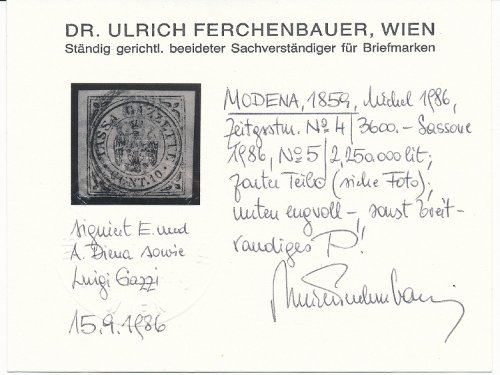 DR. ULRICH FERCHENBAUER, WIEN
Ständig gerichtl. beeideter Sachverständiger für Briefmarken
TASSA GAZZETTE
CENT. 10.
MODENA, 1859, Michel 1986,
Zeitgsstm. No 4 / 3600.- Sassone
1986, No 5 / 2,250.000 lit;
zarter Teilo (siehe Foto);
unten engvoll – sonst breit-
randiges P!
signiert E. und
A. Diena sowie
Luigi Gazzi
15.9.1986